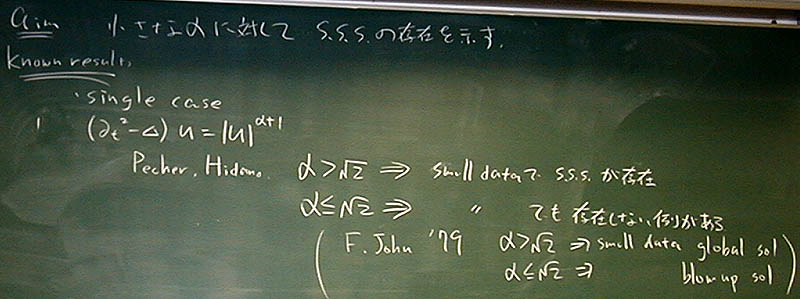 Aim 小さなαに対して S.S.S. の存在を示す.
Known results,
・single case
(∂t²-△) u = |u|^{α+1}
Pecher, Hidano. α>√2 ⇒ small data で S.S.S. が存在
α≤√2 ⇒ 〃 でも存在しない例がある
( F. John '79 α>√2 ⇒ small data global sol
α≤√2 ⇒ blow up sol )